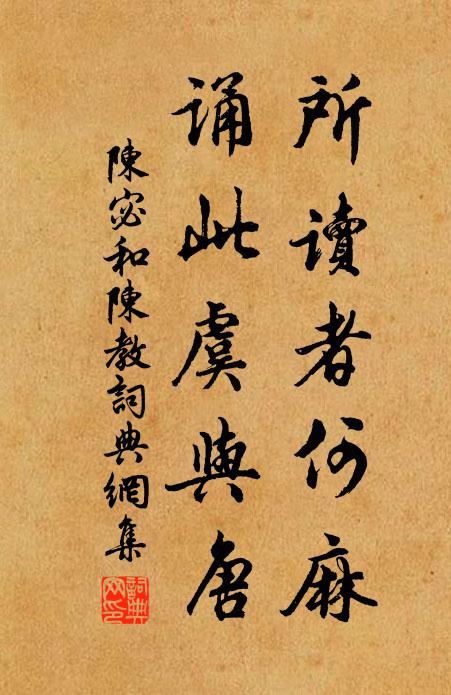 所讀者何麻
誦此虞與唐
陳宓和陳教詞典網集
詞典网印